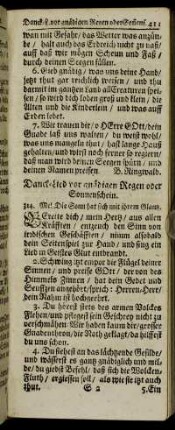 Danck-L. vor gnädigen Regen oder Soñensch. 431
wan mit Gefahr/ das Wetter was anzün-
de / halt auch das Erdreich nicht zu naß/
auff daß wir mögen Scheun und Faß /
durch deinen Seegen füllen.
6. Gieb gnädig / was uns deine Hand/
jetzt thut gar reichlich weisen / und thu
darmit im gantzen Land all Creaturen spei-
sen / so wird dich loben groß und klein / die
Alten und die Kinderlein / und was auff
Erden lebet.
7. Wir trauen dir / o HErr GOtt / dein
Gnade laß uns walten / du weist wohl/
was uns mangeln thut / hast lange Hauß
gehalten / und wirst noch ferner so regieren/
daß man wird deinen Seegen spürn / und
deinen Namen preisen. B. Ringwald.
Danck-Lied vor gnädigen Regen oder
Sonnenschein.
314. Mel. Die Sonn hat sich mit ihrem Glantz.
Bereite dich / mein Hertz / aus allen
Kräfften / entzeuch den Sinn von
irrdischen Geschäfften / nimm alsobald
dein Seitenspiel zur Hand / und sing ein
Lied in Geistes Glut entbrandt.
2. Schwing itzt empor die Flügel deiner
Sinnen / und preise GOtt / der von des
Himmels Zinnen / hat dein Gebet und
Seufftzen angehört / sprich: Herren-Herr/
dem Nahm ist hochgeehrt.
3. Du hörest stets des armen Volckes
Flehen / und pflegst sein Geschrey nicht zu
verschmähen / Wir haben kaum dir / grosser
Gnadenthron, die Noth geklagt / da hilffest
du uns schon.
4. Du siehest an das lächzende Gefilde/
und wässerst es gantz gnädiglich und mil-
de / du giebst Befehl / daß sich die Wolcken-
Fluth / ergiessen soll / als wie sie itzt auch
thut. S 2 5. Ein